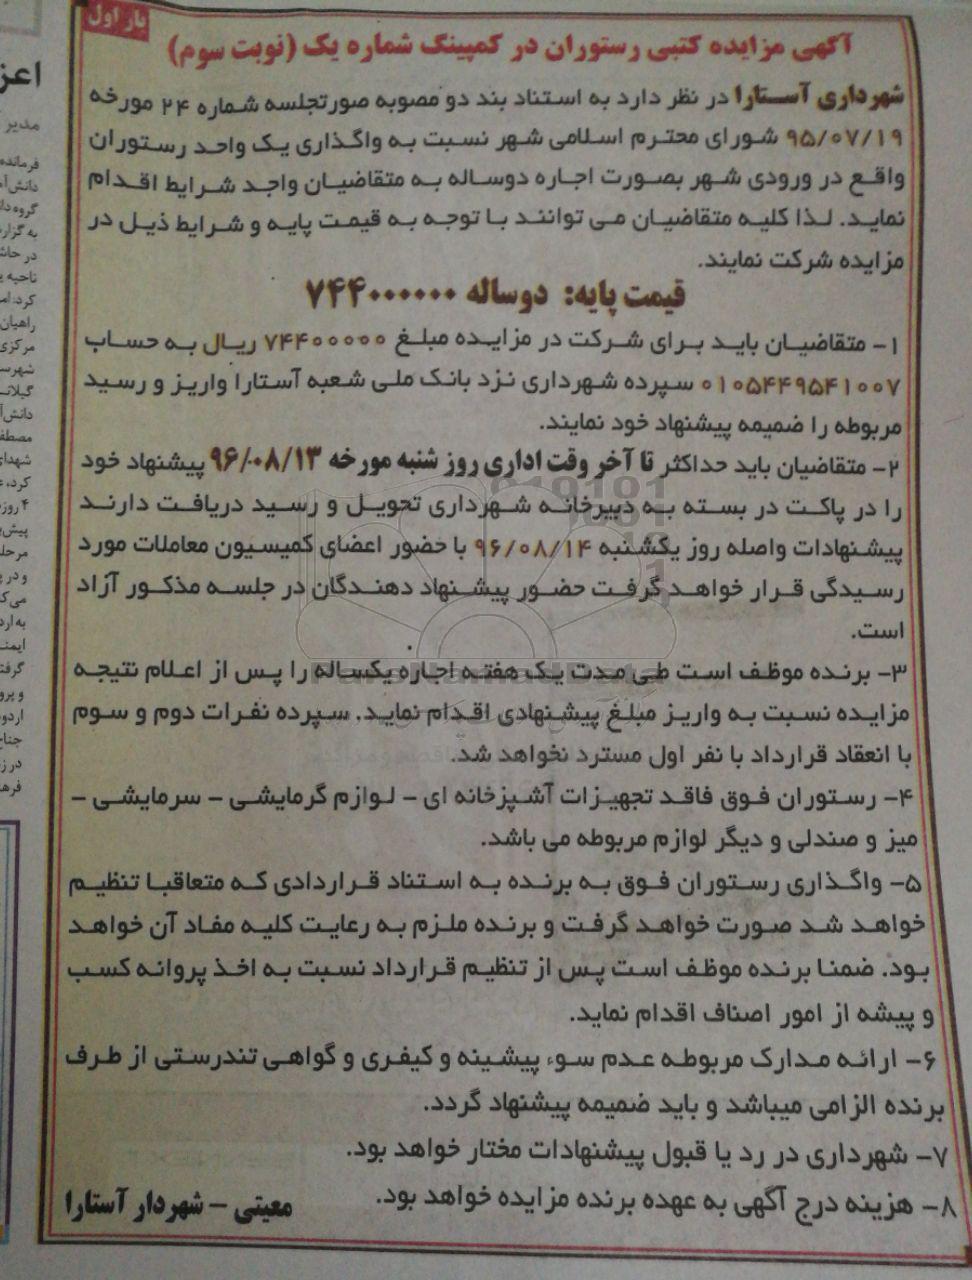 بار اول
آگهی مزایده کتبی رستوران در کمپینگ شماره یک (نوبت سوم)
شهرداری آستارا در نظر دارد به استناد بند دو مصوبه صورتجلسه شماره ۲۴ مورخه
۹۵/۰۷/۱۹ شورای محترم اسلامی شهر نسبت به واگذاری یک واحد رستوران
واقع در ورودی شهر بصورت اجاره دوساله به متقاضیان واجد شرایط اقدام
نماید. لذا کلیه متقاضیان می توانند با توجه به قیمت پایه و شرایط ذیل در
مزایده شرکت نمایند.
قیمت پایه: دوساله ۷۴۴۰۰۰۰۰۰
۱- متقاضیان باید برای شرکت در مزایده مبلغ ۷۴۴۰۰۰۰۰ ریال به حساب
۰۱۰۵۴۴۹۵۴۱۰۰۷ سپرده شهرداری نزد بانک ملی شعبه آستارا واریز و رسید
مربوطه را ضمیمه پیشنهاد خود نمایند.
۲- متقاضیان باید حداکثر تا آخر وقت اداری روز شنبه مورخه ۹۶/۰۸/۱۳ پیشنهاد خود
را در پاکت در بسته به دبیرخانه شهرداری تحویل و رسید دریافت دارند
پیشنهادات واصله روز یکشنبه ۹۶/۰۸/۱۴ با حضور اعضای کمیسیون معاملات مورد
رسیدگی قرار خواهد گرفت حضور پیشنهاد دهندگان در جلسه مذکور آزاد
است.
۳- برنده موظف است طی مدت یک هفته اجاره یکساله را پس از اعلام نتیجه
مزایده نسبت به واریز مبلغ پیشنهادی اقدام نماید. سپرده نفرات دوم و سوم
با انعقاد قرارداد با نفر اول مسترد نخواهد شد.
۴- رستوران فوق فاقد تجهیزات آشپزخانه ای - لوازم گرمایشی - سرمایشی -
میز و صندلی و دیگر لوازم مربوطه می باشد.
۵- واگذاری رستوران فوق به برنده به استناد قراردادی که متعاقبا تنظیم
خواهد شد صورت خواهد گرفت و برنده ملزم به رعایت کلیه مفاد آن خواهد
بود. ضمنا برنده موظف است پس از تنظیم قرارداد نسبت به اخذ پروانه کسب
و پیشه از امور اصناف اقدام نماید.
۶- ارائه مدارک مربوطه عدم سوء پیشینه و کیفری و گواهی تندرستی از طرف
برنده الزامی میباشد و باید ضمیمه پیشنهاد گردد.
۷- شهرداری در رد یا قبول پیشنهادات مختار خواهد بود.
۸- هزینه درج آگهی به عهده برنده مزایده خواهد بود.
معیتی - شهردار آستارا